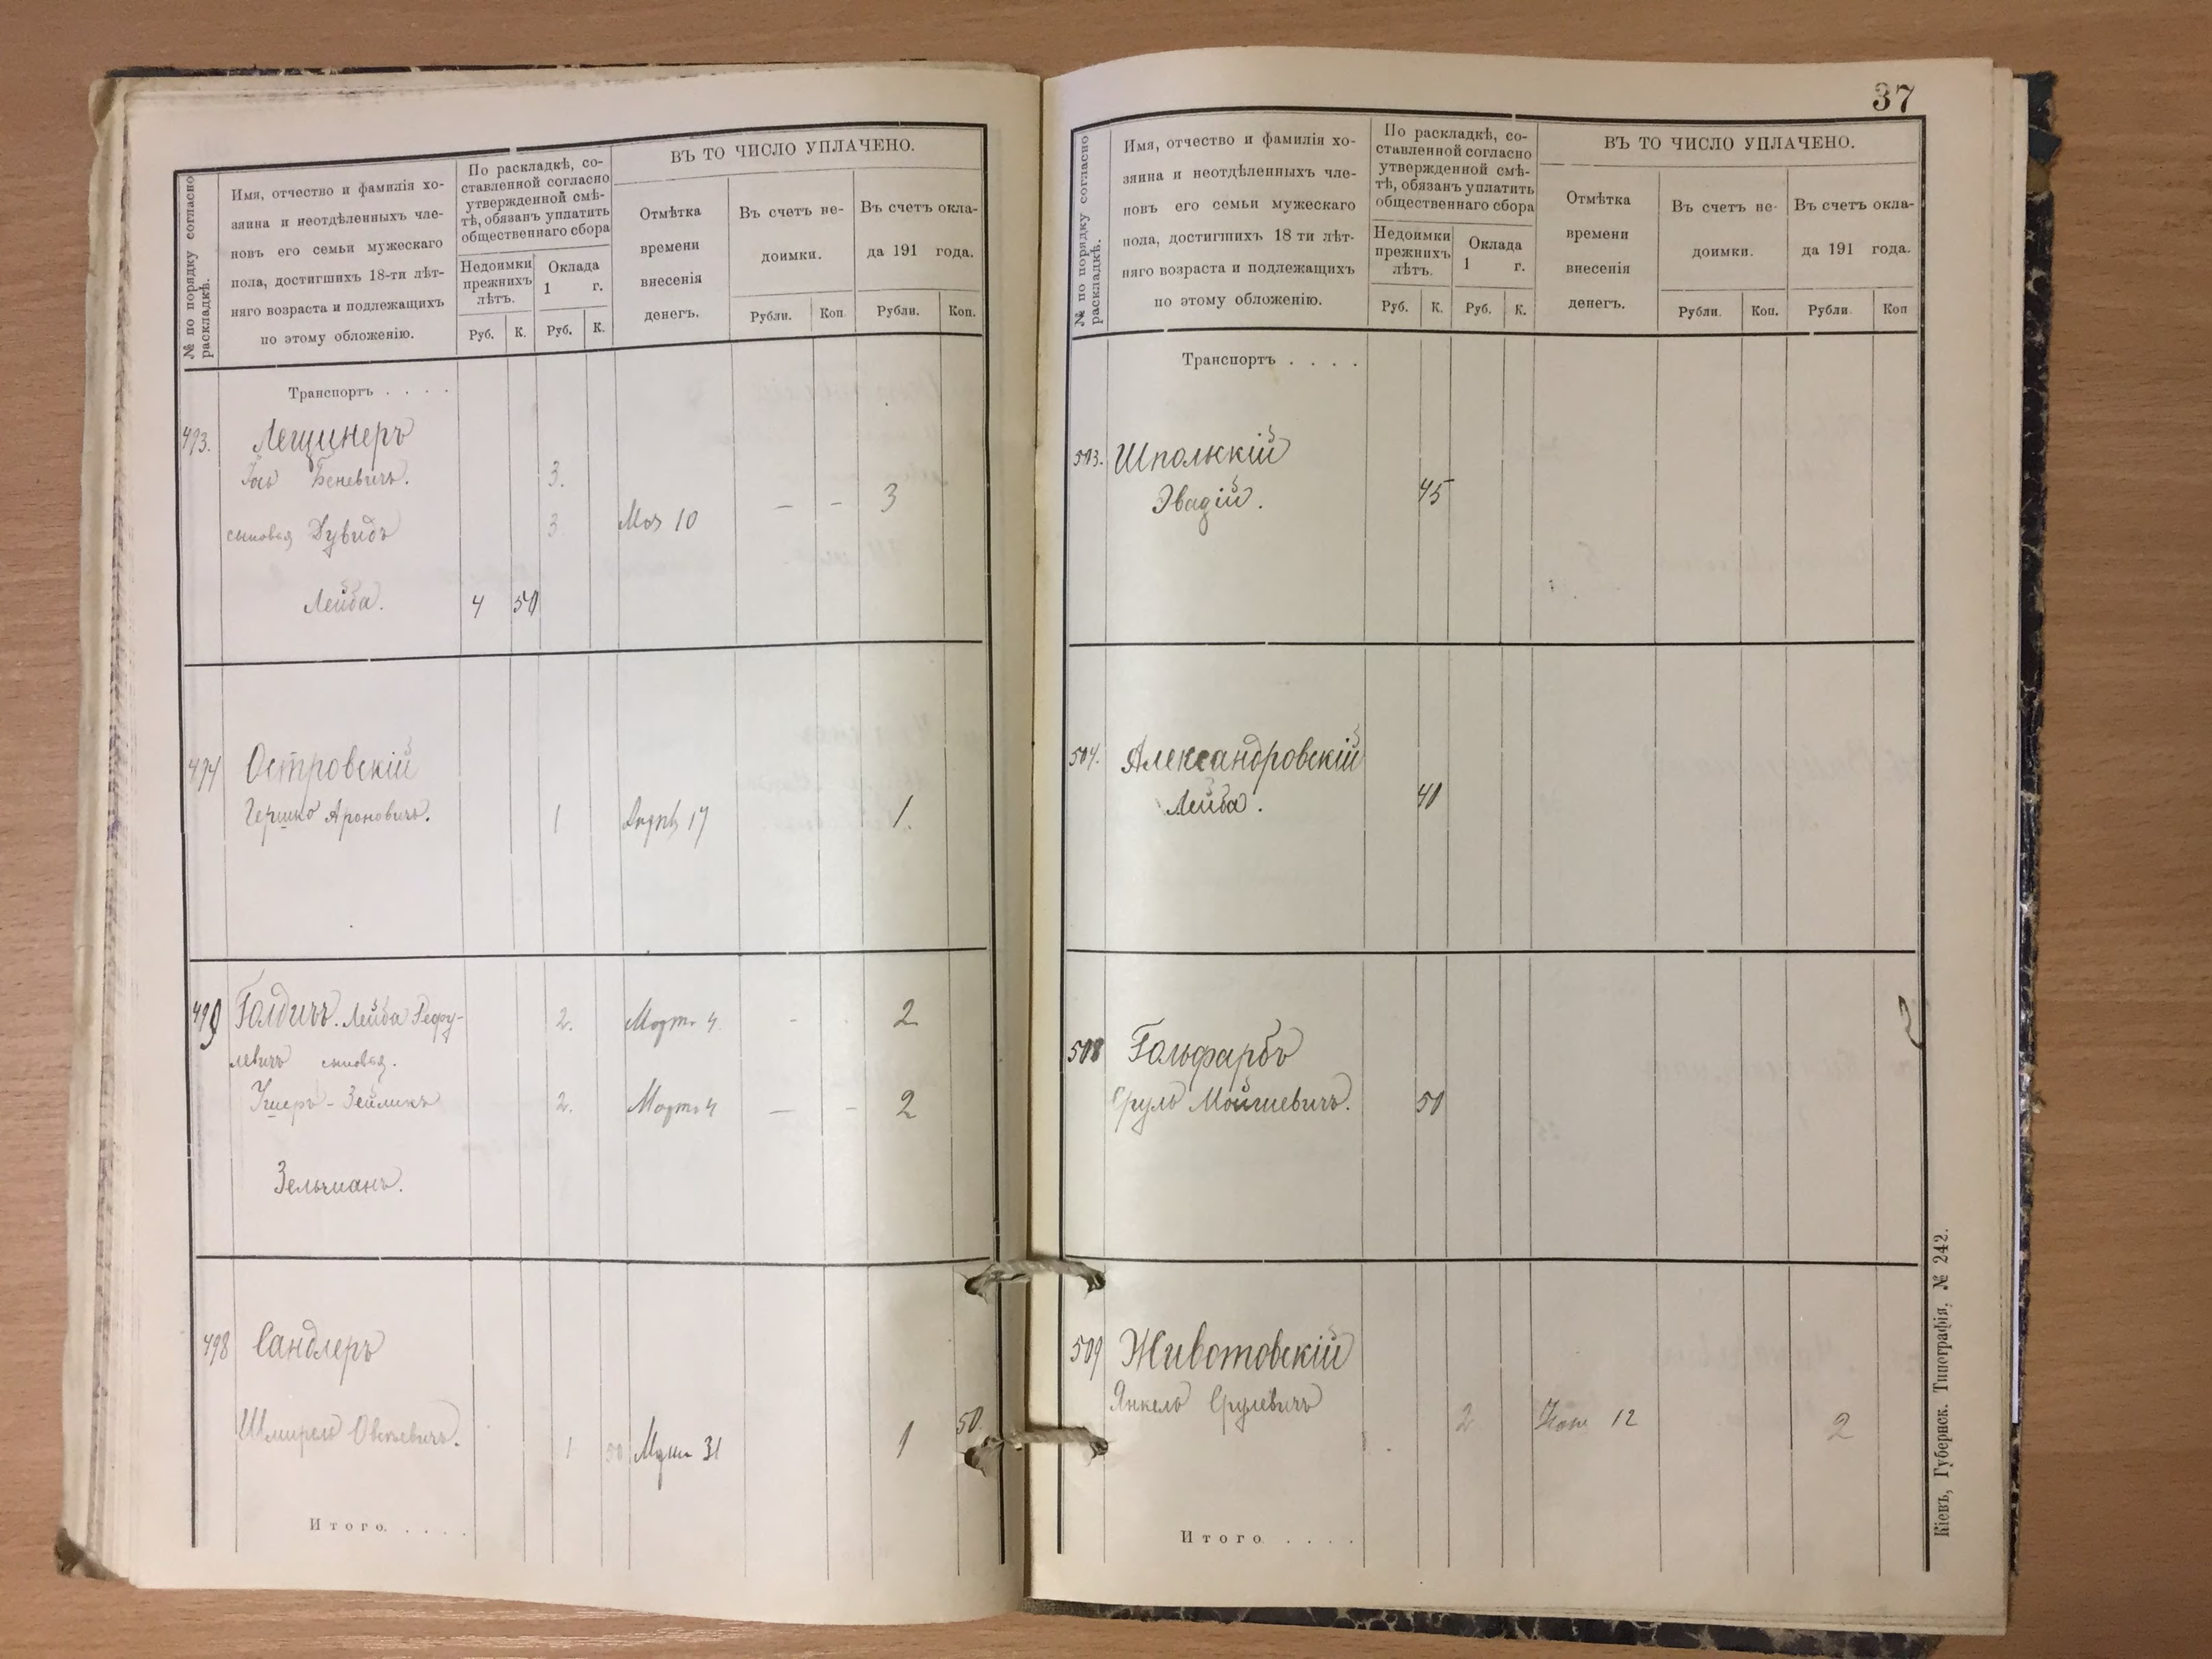 № по порядку согласно раскладкѣ.
Имя, отчество и фамилія хо-
зяина и неотдѣленныхъ чле-
новъ его семьи мужескаго
пола, достигшихъ 18-ти лѣт-
няго возраста и подлежащихъ
по этому обложенію.
По раскладкѣ, со-
ставленной согласно
утвержденной смѣ-
тѣ, обязанъ уплатить
общественнаго сбора
Недоимки
прежнихъ
лѣтъ.
Оклада
1 г.
Руб. К. Руб. К.
ВЪ ТО ЧИСЛО УПЛАЧЕНО.
Отмѣтка
времени
внесенія
денегъ.
Въ счетъ не-
доимки.
Въ счетъ окла-
да 191 года.
Рубли. Коп. Рубли. Коп.
Транспортъ . . . .
493. Лещинеръ
Беневичъ. 3.
сыновья Дувидъ 3 10 — - 3
Лейба. 4 50
494 Островскій
Гершко Ароновичъ. 1 17 1.
Голдичъ. Лейба
2. Март 4 - . 2
левичъ сыновья.
Ушеръ-Зейликъ 2. Март 4 — - 2
Зельманъ.
498 Сандлеръ
Шмирель 1 50 31 1 50.
Итого. . . . .
37
№ по порядку согласно раскладкѣ.
Имя, отчество и фамилія хо-
зяина и неотдѣленныхъ чле-
новъ его семьи мужескаго
пола, достигшихъ 18 ти лѣт-
няго возраста и подлежащихъ
по этому обложенію.
По раскладкѣ, со-
ставленной согласно
утвержденной смѣ-
тѣ, обязанъ уплатить
общественнаго сбора
Недоимки
прежнихъ
лѣтъ.
Оклада
1 г.
Руб. К. Руб. К.
ВЪ ТО ЧИСЛО УПЛАЧЕНО.
Отмѣтка
времени
внесенія
денегъ.
Въ счетъ не-
доимки.
Въ счетъ окла-
да 191 года.
Рубли. Коп. Рубли. Коп
Транспортъ . . . .
503. Шпольскій
Эвадій. 45
504. Александровскій
Лейба. 40
508 Гольфарбъ
Сруль Мойшевичъ. 50
2
509 Животовскій
Янкель Срулевичъ 2 12 2
Итого . . . .
Кіевъ, Губернск. Типографія, № 242.